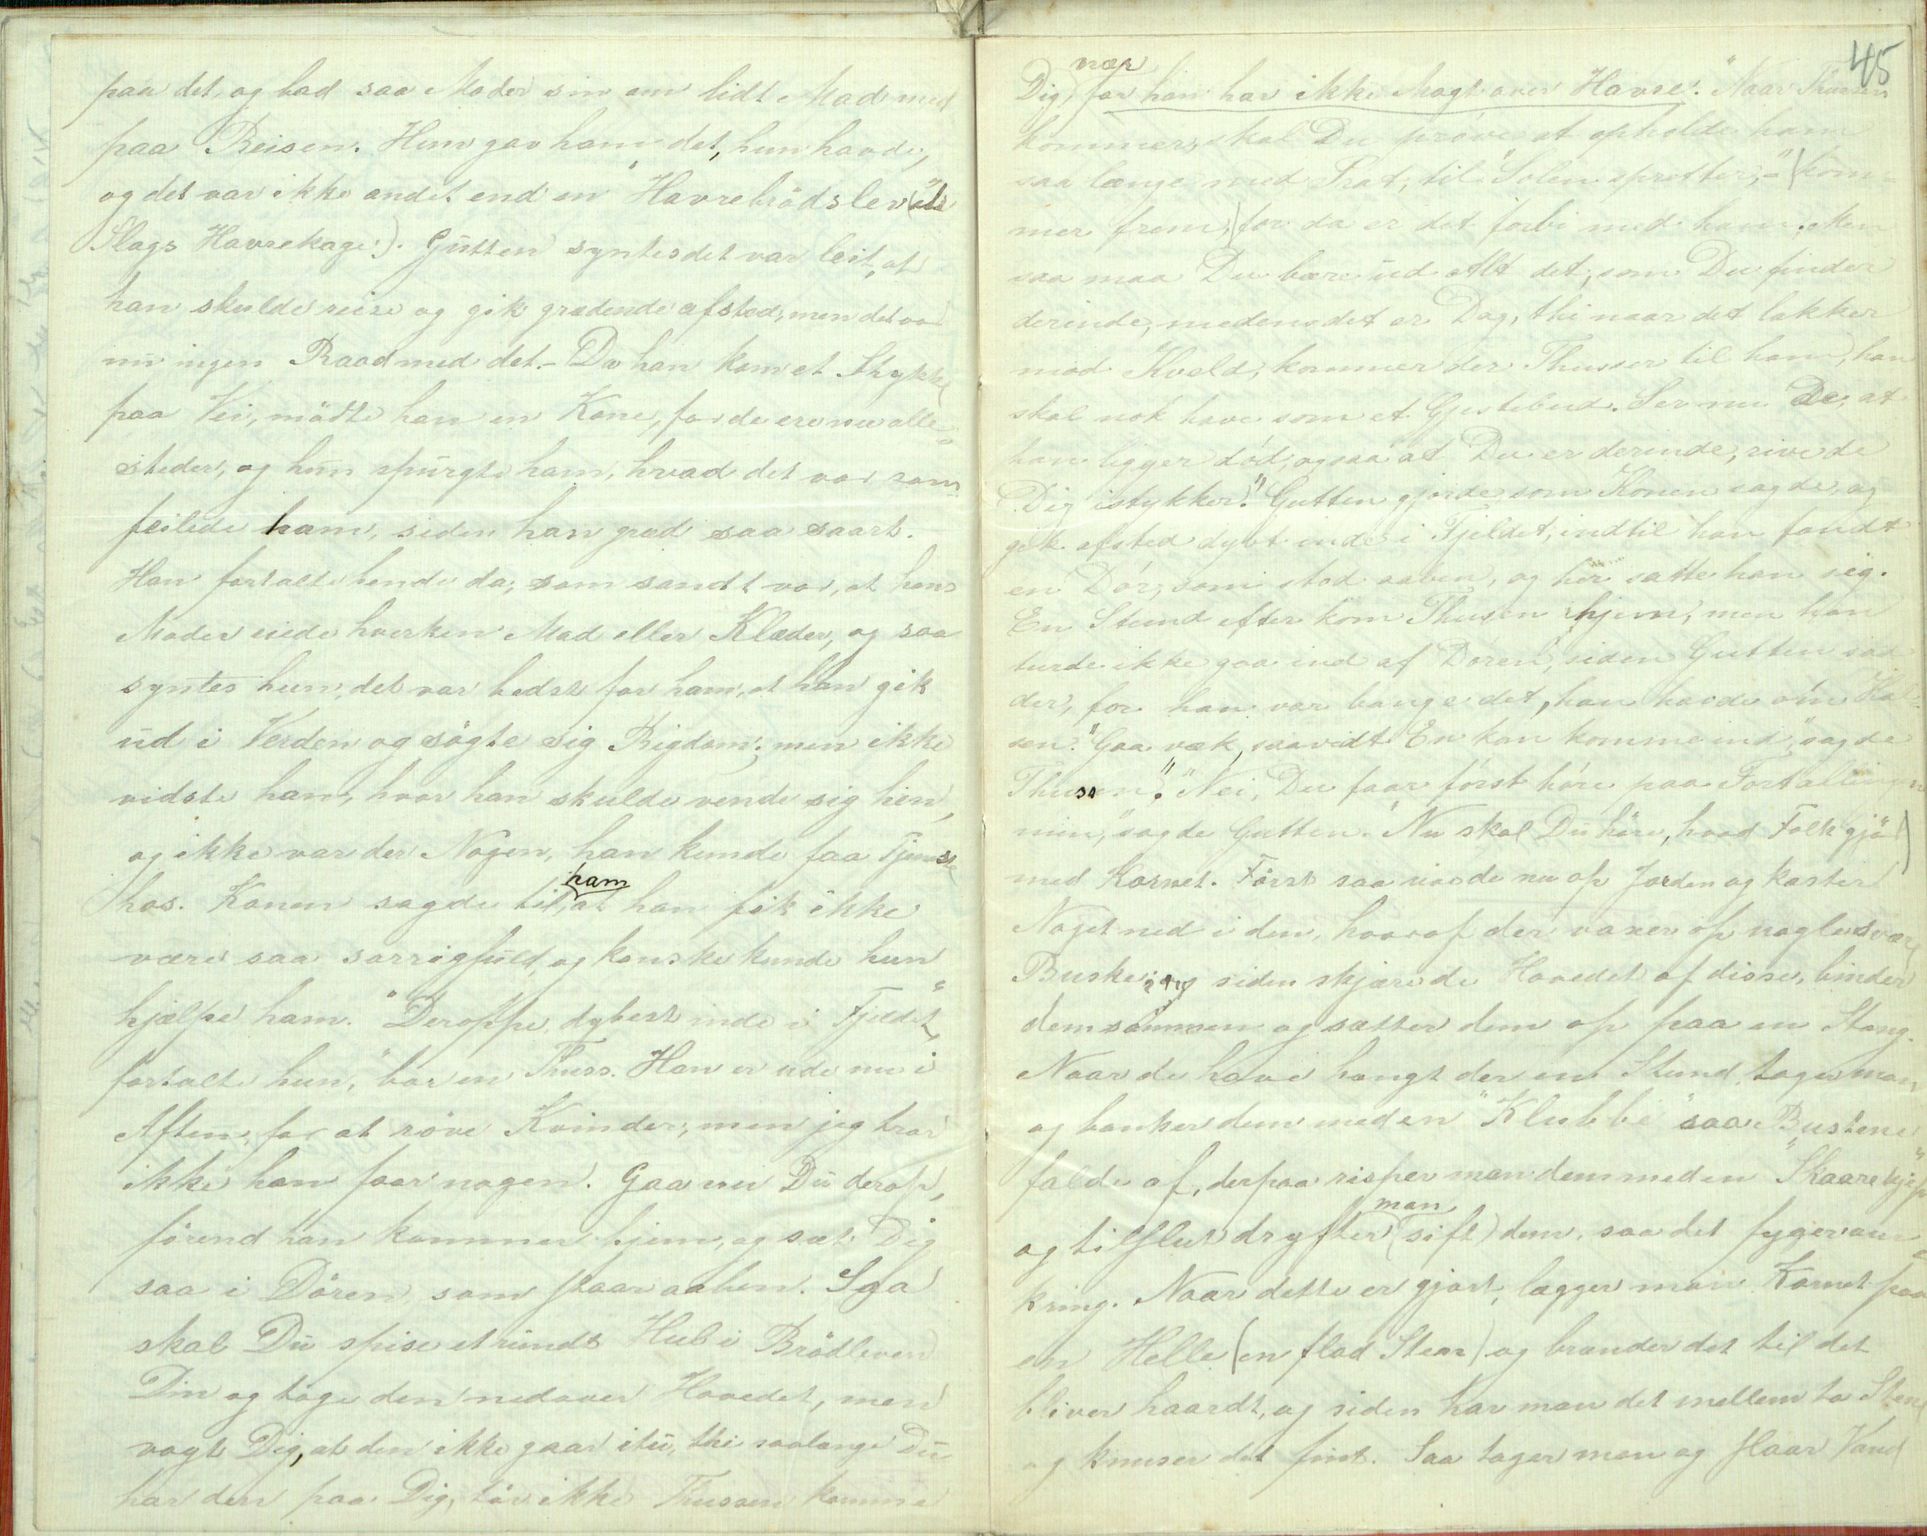 paa det, og bad saa Moder sin om lidt Mad med
paa Reisen. Hun gav ham det, hun havde,
og det var ikke andet end en "Havrebrödslev" (et
Slags Havrekage). Gutten syntes det var leit, at
han skulde reise og gik grædende afsted, men det var
nu ingen Raad med det. – Da han kom et Stykke
paa Vei, mödte han en Kone, for de ere nu alle-
steder, og hun spurgte ham, hvad det var som
feilede ham, siden han græd saa saart.
Han fortalte hende da, som sandt var, at hans
Moder eiede hverken Mad eller Klæder, og saa
syntes hun, det var bedst for ham, at han gik
ud i Verden og sögte sig Rigdom; men ikke
vidste han, hvor han skulde vende sig hen,
og ikke var der Nogen, han kunde faa Tjeneste
hos. Konen sagde til ham at han fik ikke
være saa sorrigfuld, og kanske kunde hun
hjælpe ham. "Deroppe dybest inde i Fjeldet",
fortalte hun, "bor en Thuss. Han er ude nu i
Aften, for at röve Kvinder, men jeg tror
ikke han faar nogen. Gaa nu Du derop,
förend han kommer hjem, og sæt Dig
saa i Dören, som staar aaben. Saa
skal Du spise et rundt Hul i Brödleven
Din og tage den nedover Hovedet, men
vogt Dig, at den ikke gaar itu, thi saalænge Du
har den paa Dig, tör ikke Thussen komme
45
Dig nær, for han har ikke Magt over Havre. "Naar Thussen
kommer, skal Du pröve at opholde ham
saa længe med Snak, til "Solen spretter", – (kom-
mer frem) for da er det forbi med ham. Men
saa maa Du bære ud Alt det, som Du finder
derinde, medens det er Dag, thi naar det lakker
mod Kveld, kommer der Thusser til ham, han
skal nok have som et Gjestebud. Ser nu De, at
han ligger död, og saa at Du er derinde, rive de
Dig istykker." Gutten gjorde, som Konen sagde, og
gik afsted dybt inde i Fjeldet, indtil han fandt
en Dör, som stod aaben, og her satte han sig.
En Stund efter kom Thussen hjem, men han
turde ikke gaa ind af Dören, siden Gutten sad
der, for han var bange det, han havde om Hal-
sen. "Gaa væk, saavidt En kan komme ind", sagde
Thussen. "Nei, Du faar först höre paa Fortællingen
min," sagde Gutten. "Nu skal Du höre, hvad Folk gjör
med Kornet. Först saa de nu op Jorden og kaster
Noget ned i den, hvoraf der vaxer op nogle svære
Buske, og siden skjære de Hovedet af disse, binder
dem sammen og sætter dem op paa en Stang.
Naar de have hængt der en Stund, tager man
og banker dem med en "Klubbe" saa Bustene
falde af, derpaa risper man dem med en "Skaarekjep"
og tilslut dryfter man (sift) dem, saa det fyger om-
kring. Naar dette er gjort, lægger man Kornet paa
en Helle (en flad Sten) og brænder det til det
bliver haardt, og siden har man det mellem to Stene
og knuser det fint. Saa tager man og slaar Vand